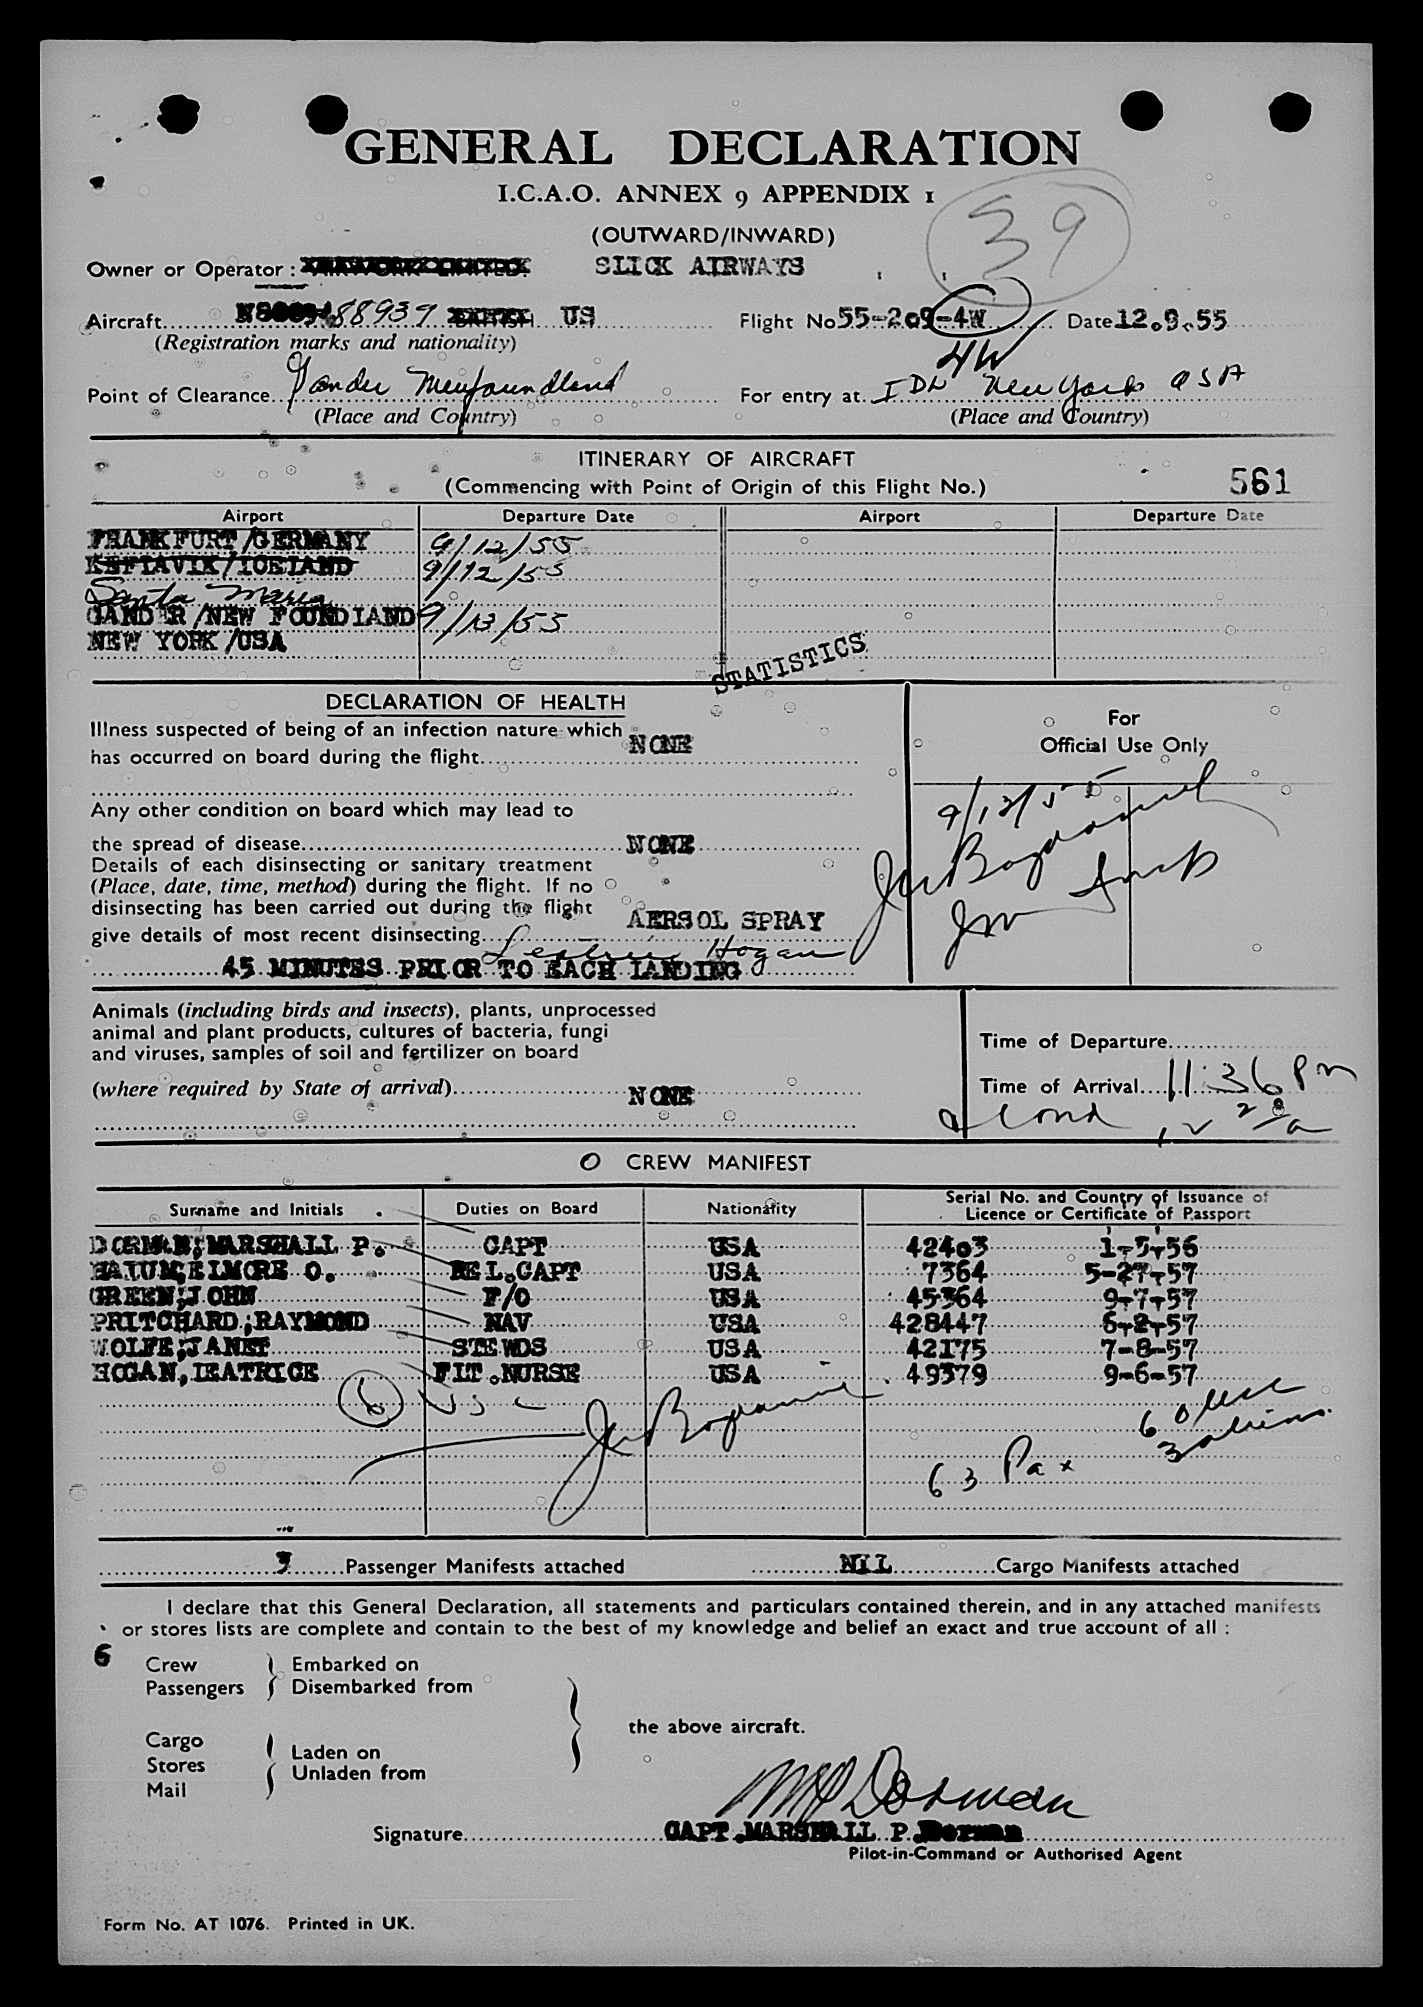 GENERAL DECLARATION
I.C.A.O. ANNEX 9 APPENDIX 1
39
(OUTWARD/INWARD)
Owner or Operator: SLICK AIRWAYS
Aircraft 88939 US Flight No 55-209-4W Date 12.9.55
(Registration marks and nationality)
4W
Point of Clearance Gander Newfoundland For entry at IDL New York USA
(Place and Country) (Place and Country)
ITINERARY OF AIRCRAFT
(Commencing with Point of Origin of this Flight No.) 561
Airport Departure Date Airport Departure Date
FRANKFURT/GERMANY 9/12/55
KEFLAVIK/ICELAND 9/12/55
Santa Maria
GANDER/NEW FOUNDLAND 9/13/55
NEW YORK/USA
STATISTICS
DECLARATION OF HEALTH
For
Official Use Only
Illness suspected of being of an infection nature which
has occurred on board during the flight NONE
Any other condition on board which may lead to
the spread of disease NONE
Details of each disinsecting or sanitary treatment
(Place, date, time, method) during the flight. If no
disinsecting has been carried out during the flight
give details of most recent disinsecting AERSOL SPRAY
Hogan
45 MINUTES PRIOR TO EACH LANDING
9/13/55
Animals (including birds and insects), plants, unprocessed
animal and plant products, cultures of bacteria, fungi
and viruses, samples of soil and fertilizer on board
(where required by State of arrival) NONE
Time of Departure
Time of Arrival 11:36 PM
CREW MANIFEST
Surname and Initials Duties on Board Nationality Serial No. and Country of Issuance of
Licence or Certificate of Passport
DORMAN, MARSHALL P. CAPT USA 42403 1-5-56
HATUM, ELMORE O. REL.CAPT USA 7364 5-27-57
GREEN, JOHN F/O USA 45364 9-7-57
PRITCHARD, RAYMOND NAV USA 428447 6-2-57
WOLFE, JANET STEWDS USA 42175 7-8-57
HOGAN, LEATRICE FLT.NURSE USA 49379 9-6-57
6 USC
60 USC
3 aliens
63 Pax
3 Passenger Manifests attached NIL Cargo Manifests attached
I declare that this General Declaration, all statements and particulars contained therein, and in any attached manifests
or stores lists are complete and contain to the best of my knowledge and belief an exact and true account of all:
6 Crew Embarked on
Passengers Disembarked from
the above aircraft.
Cargo
Stores Laden on
Mail Unladen from
MP Dorman
Signature CAPT.MARSHALL P.Dorman
Pilot-in-Command or Authorised Agent
Form No. AT 1076. Printed in UK.